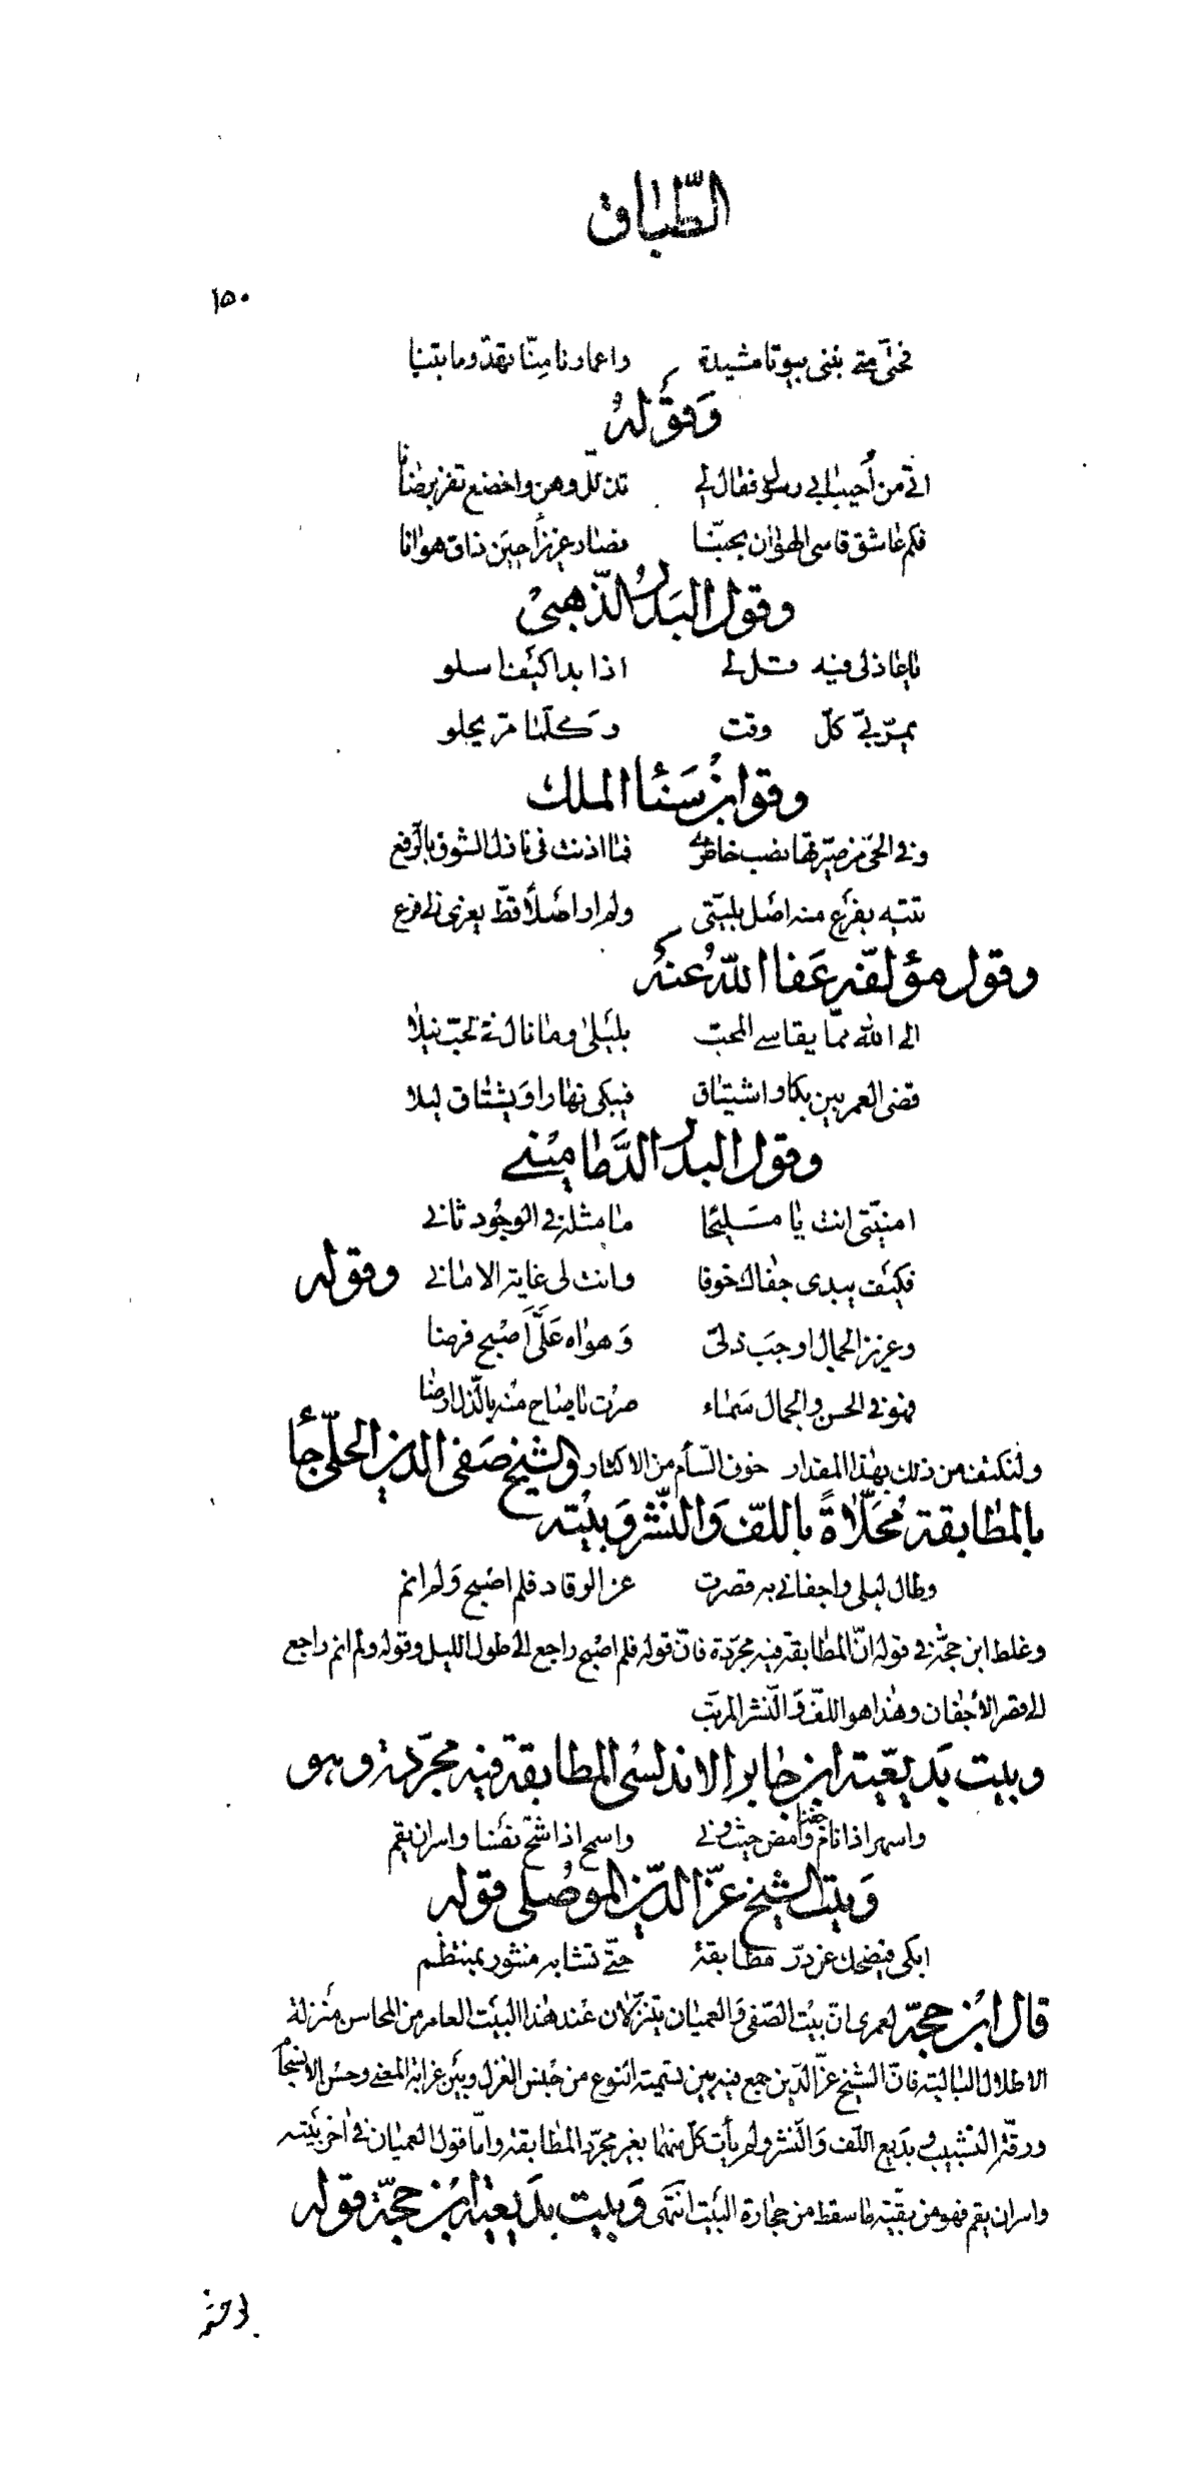 الطباق
١٥٠
فحتى متى نبنى بيوتا مشيدة واعمارنا منّا تهدّ وما بتنا
وقوله
اتى من أحيبابى رسول فقال لى تذلّل وهن واخضع تفز برضانا
فكم عاشق قاسى الهوان بحبّنا فصار عزيزاً حين ذاق هوانا
وقول البدر الذّهبىّ
يا عاذلى فيه قل لى اذا بدا كيف اسلو
يمرّ بى كلّ وقت وكلّما مرّ يحلو
وقول ابن سنا الملك
وفى الحىّ من صيّرتها نصب خاطرى فما اذنت فى نازل الشوق بالرّفع
تتيه بفرع منه اصل بليّتى ولم ار اصلاً قطّ يعزى لى فرع
وقول مؤلّفه عفا الله عنه
الى الله ممّا يقاسى المحبّ بليلى وما نال فى الحبّ نيلا
قضى العمر بين بكا واشتياق فيبكى نهارا ويشتاق ليلا
وقول البدر الدّمامينى
امنيّتى انت يا مليحا ما مثله فى الوجود ثانى
فكيف يبدى جفاك خوفا وانت لى غاية الامانى وقوله
وعزيز الجمال اوجب ذلّى وهواه علىّ اصبح فرضا
فهو فى الحسن والجمال سماء صرت يا صاح منه بالذّل ارضا
ولنكتف من ذلك بهذا المقدار خوف السّأم من الاكثار والشيخ صفى الدين الحلّى جاء
بالمطابقة محلّاةً باللفّ والنّشر وبيته
وطال ليلى واجفانى به قصرت عن الرقاد فلم اصبح ولم انم
وغلط ابن حجّة فى قوله انّ المطابقة فيه مجرّدة فانّ قوله فلم اصبح راجع الى طول الليل وقوله ولم انم راجع
الى قصر الأجفان وهذا هو اللفّ والنّشر المرتب
وبيت بديعيّة ابن جابر الاندلسى المطابقة فيه مجرّدة وهو
واسهر اذا نام وامض حيث ونى واسمح اذا شحّ نفسا واسر ان يقم
وبيت الشيخ عزّ الدّين الموصلى قوله
ابكى فيضحك عن درّ مطابقة حتّى تشابه منثور بمنتظم
قال ابن حجّة لعمرى انّ بيت الصّفى والعميان يتنزّلان عند هذا البيت العامر من المحاسن منزلة
الاطلال البالية فانّ الشيخ عزّ الدّين جمع فيه بين تسمية النوع من جنس الغزل وبين غرابة المعنى وحسن الانسجام
ورقّة التشبيب وبديع اللّف والنّشر ولم يأت كلّ منهما بغير مجرّد المطابقة وامّا قول العميان فى اخر بيته
واسر ان يقم فهو من بقيّة ما سقط من حجارة البيت انتهى وبيت بديعيّة ابن حجّة قوله